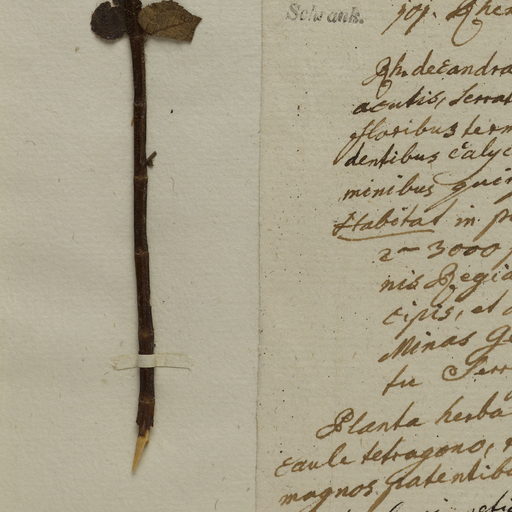 Schrank.
101. Rhex
Rh. decandra
acutis, serrat
floribus term
dentibus Calyc
minibus quin
Habitat in p
2 - 3000 p
nis Regia
cipis, et
Minas Ge
tu Serr
Planta herba
caule tetragono, r
magnos patentibu